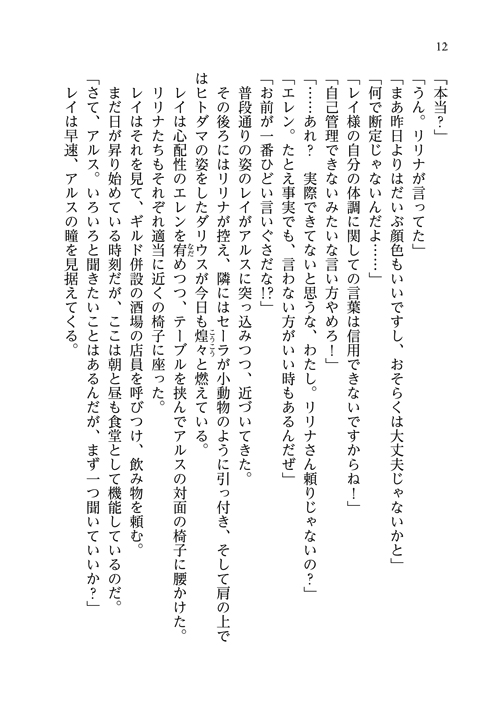 12
「本当？」
「うん。リリナが言ってた」
「まあ昨日よりはだいぶ顔色もいいですし、おそらくは大丈夫じゃないかと」
「何で断定じゃないんだよ……」
「レイ様の自分の体調に関しての言葉は信用できないですからね！」
「自己管理できないみたいな言い方やめろ！」
「……あれ？　実際できてないと思うな、わたし。リリナさん頼りじゃないの？」
「エレン。たとえ事実でも、言わない方がいい時もあるんだぜ」
「お前が一番ひどい言いぐさだな!?」
普段通りの姿のレイがアルスに突っ込みつつ、近づいてきた。
その後ろにはリリナが控え、隣にはセーラが小動物のように引っ付き、そして肩の上で
はヒトダマの姿をしたダリウスが今日も煌々と燃えている。
レイは心配性のエレンを宥めつつ、テーブルを挟んでアルスの対面の椅子に腰かけた。
リリナたちもそれぞれ適当に近くの椅子に座った。
レイはそれを見て、ギルド併設の酒場の店員を呼びつけ、飲み物を頼む。
まだ日が昇り始めている時刻だが、ここは朝と昼も食堂として機能しているのだ。
「さて、アルス。いろいろと聞きたいことはあるんだが、まず一つ聞いていいか？」
レイは早速、アルスの瞳を見据えてくる。